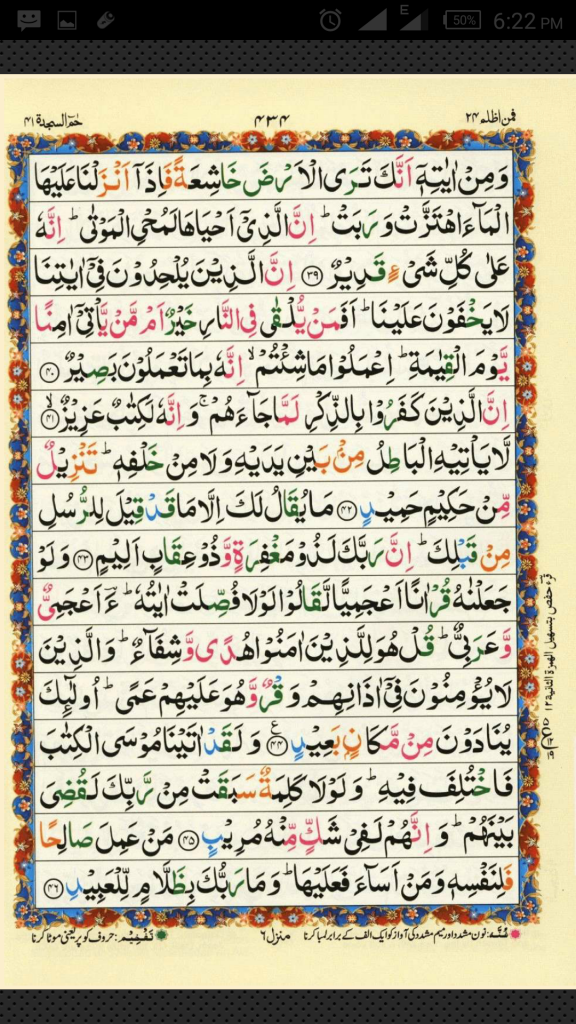 E
50%
6:22 PM
حٰمٓ السجدة ۴۱
۴۳۴
فمن اظلم ۲۴
وَمِنْ اٰيٰتِهٖٓ اَنَّكَ تَرَى الْاَرْضَ خَاشِعَةً فَاِذَآ اَنْزَلْنَا عَلَيْهَا
الْمَآءَ اهْتَزَّتْ وَرَبَتْ ؕ اِنَّ الَّذِيْٓ اَحْيَاهَا لَمُحْيِ الْمَوْتٰى ؕ اِنَّهٗ
عَلٰى كُلِّ شَيْءٍ قَدِيْرٌ ۝۳۹ اِنَّ الَّذِيْنَ يُلْحِدُوْنَ فِيْٓ اٰيٰتِنَا
لَا يَخْفَوْنَ عَلَيْنَا ؕ اَفَمَنْ يُّلْقٰى فِي النَّارِ خَيْرٌ اَمْ مَّنْ يَّاْتِيْٓ اٰمِنًا
يَّوْمَ الْقِيٰمَةِ ؕ اِعْمَلُوْا مَا شِئْتُمْ ۙ اِنَّهٗ بِمَا تَعْمَلُوْنَ بَصِيْرٌ ۝۴۰
اِنَّ الَّذِيْنَ كَفَرُوْا بِالذِّكْرِ لَمَّا جَآءَهُمْ ۚ وَاِنَّهٗ لَكِتٰبٌ عَزِيْزٌ ۙ۝۴۱
لَّا يَاْتِيْهِ الْبَاطِلُ مِنْۢ بَيْنِ يَدَيْهِ وَلَا مِنْ خَلْفِهٖ ؕ تَنْزِيْلٌ
مِّنْ حَكِيْمٍ حَمِيْدٍ ۝۴۲ مَا يُقَالُ لَكَ اِلَّا مَا قَدْ قِيْلَ لِلرُّسُلِ
مِنْ قَبْلِكَ ؕ اِنَّ رَبَّكَ لَذُوْ مَغْفِرَةٍ وَّذُوْ عِقَابٍ اَلِيْمٍ ۝۴۳ وَلَوْ
جَعَلْنٰهُ قُرْاٰنًا اَعْجَمِيًّا لَّقَالُوْا لَوْلَا فُصِّلَتْ اٰيٰتُهٗ ؕ ءَؔاَعْجَمِيٌّ
وَّعَرَبِيٌّ ؕ قُلْ هُوَ لِلَّذِيْنَ اٰمَنُوْا هُدًى وَّشِفَآءٌ ؕ وَالَّذِيْنَ
لَا يُؤْمِنُوْنَ فِيْٓ اٰذَانِهِمْ وَقْرٌ وَّهُوَ عَلَيْهِمْ عَمًى ؕ اُولٰٓئِكَ
يُنَادَوْنَ مِنْ مَّكَانٍۢ بَعِيْدٍ ۝۴۴ وَلَقَدْ اٰتَيْنَا مُوْسَى الْكِتٰبَ
فَاخْتُلِفَ فِيْهِ ؕ وَلَوْلَا كَلِمَةٌ سَبَقَتْ مِنْ رَّبِّكَ لَقُضِيَ
بَيْنَهُمْ ؕ وَاِنَّهُمْ لَفِيْ شَكٍّ مِّنْهُ مُرِيْبٍ ۝۴۵ مَنْ عَمِلَ صَالِحًا
فَلِنَفْسِهٖ وَمَنْ اَسَآءَ فَعَلَيْهَا ؕ وَمَا رَبُّكَ بِظَلَّامٍ لِّلْعَبِيْدِ ۝۴۶
قرء حفص بتسهيل الهمزة الثانية ۱۲
غُنّہ: نون مشدد اور میم مشدد کی آواز کو ایک الف کے برابر لمبا کرنا
منزل ۶
تَفْخِیْم: حروف کو پُر یعنی موٹا کرنا